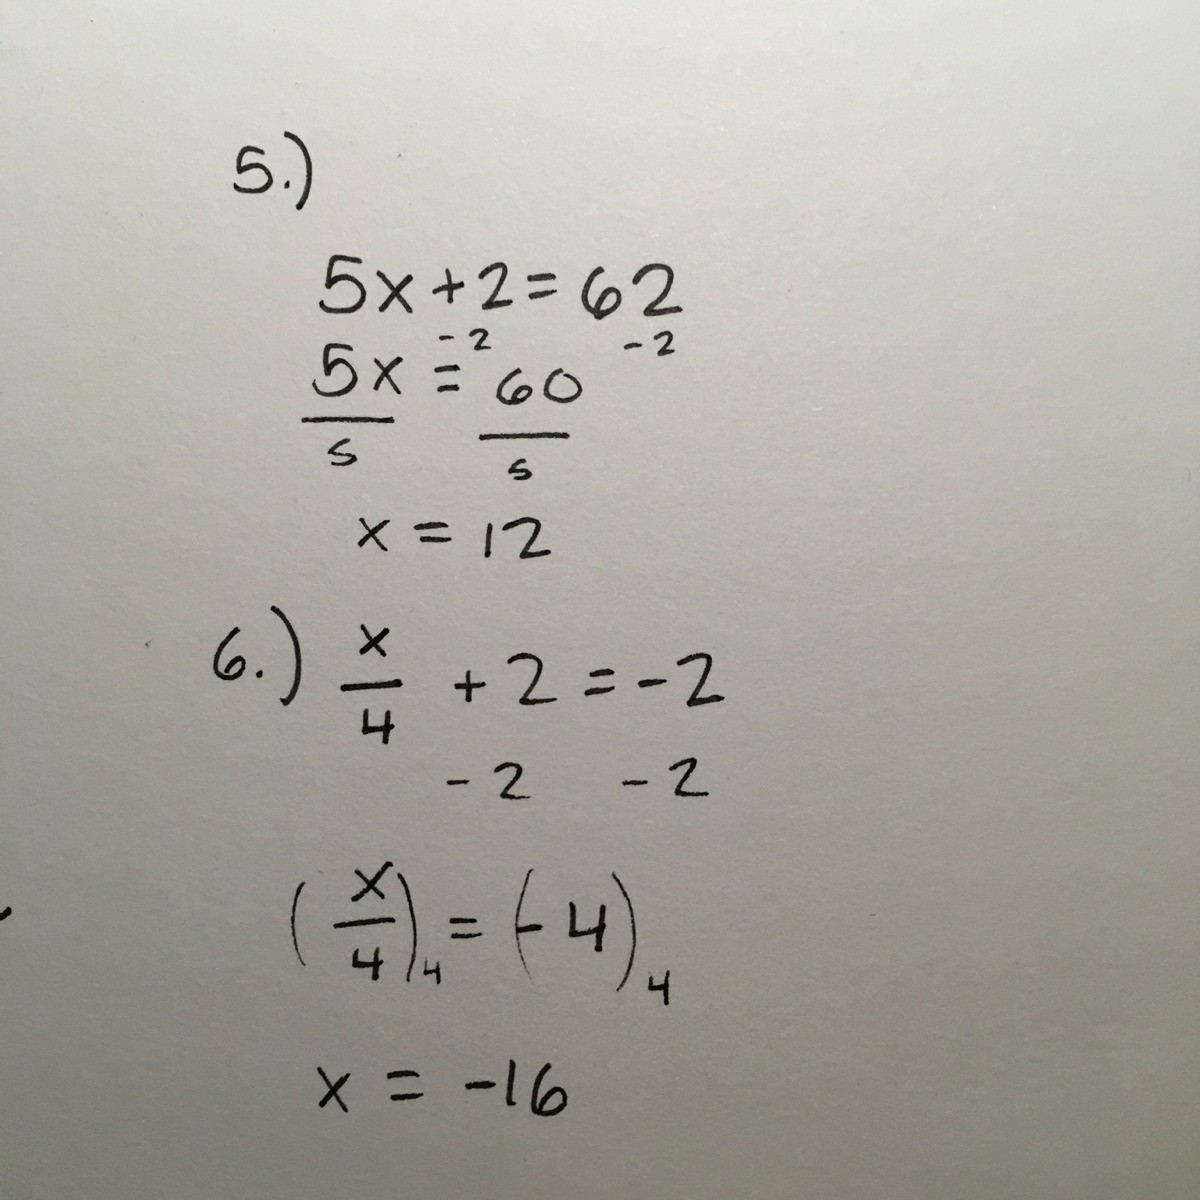 5.)
5x + 2 = 62
- 2 - 2
5x = 60
5 5
x = 12
6.) x/4 + 2 = -2
- 2 - 2
(x/4)4 = (-4)4
x = -16